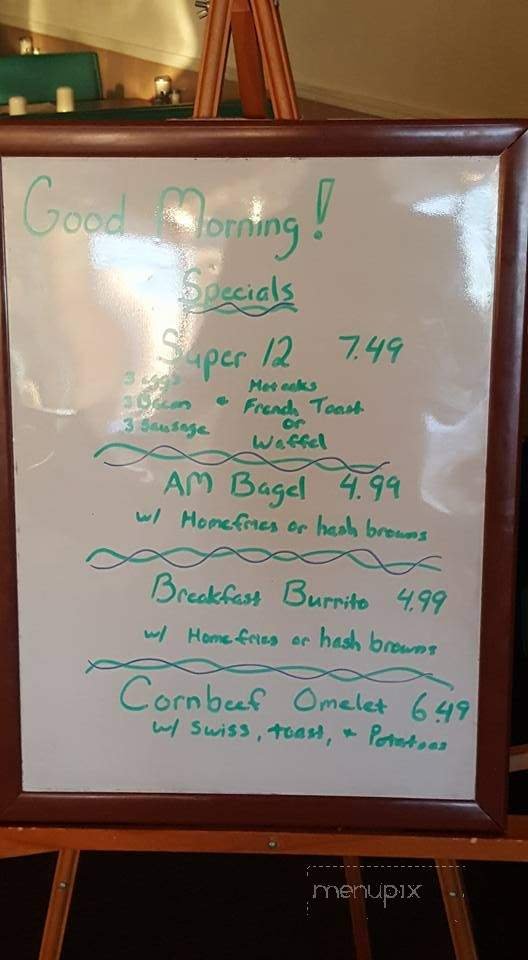 Good Morning!
Specials
Super 12 7.49
3 eggs Hotcaks
3 Bacon + French Toast
3 Sausage or
Waffel
AM Bagel 4.99
w/ Homefries or hash browns
Breakfast Burrito 4.99
w/ Homefries or hash browns
Cornbeef Omelet 6.49
w/ Swiss, toast, + Potatoes
menupix